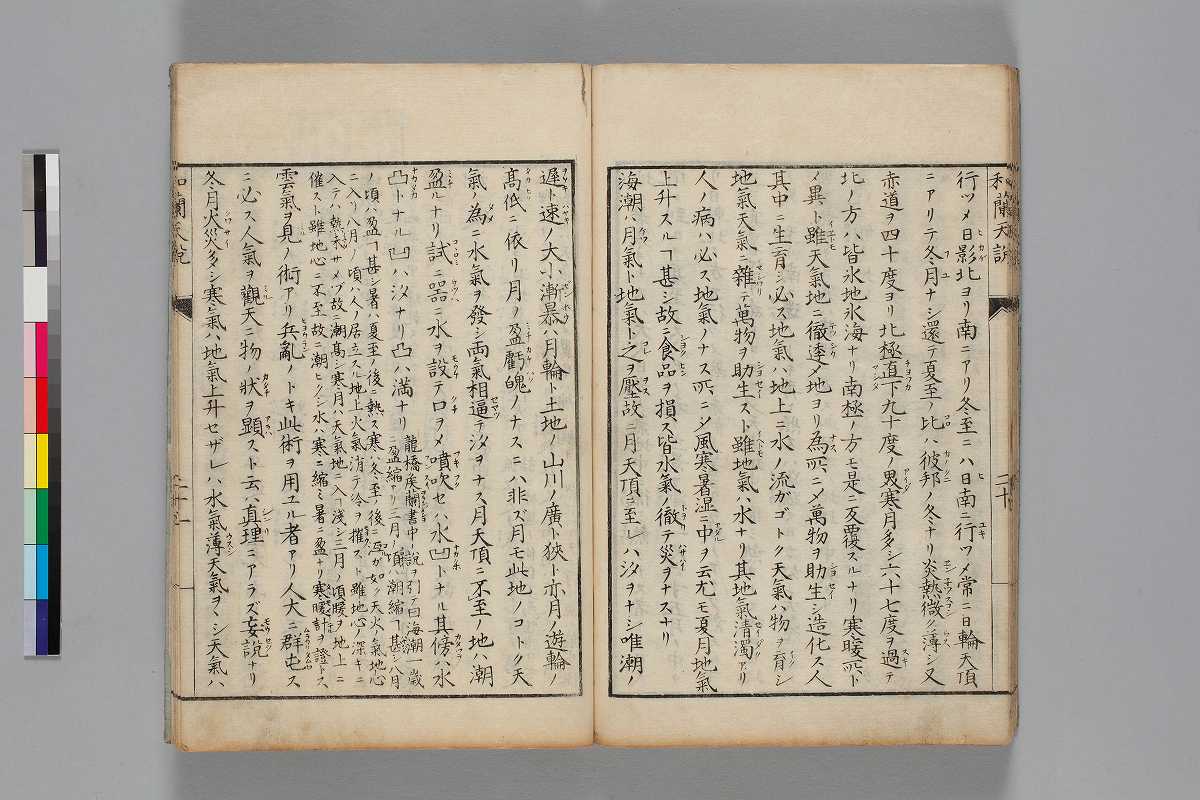 和蘭天説
二十
行ツメ日影北ヨリ南ニアリ冬至ニハ日南ニ行ツメ常ニ日輪天頂
ニアリテ冬月ナシ還テ夏至ノ比ハ彼邦ノ冬ナリ炎熱微ク薄シ又
赤道ヲ四十度ヨリ北極直下九十度ノ間寒月多シ六十七度ヲ過テ
北ノ方ハ皆氷地氷海ナリ南極ノ方モ是ニ反覆スルナリ寒暖所ト
ノ異ト雖天氣地ニ徹逹メ地ヨリ為所ニメ萬物ヲ助生シ造化ス人
其中ニ生育シ必ス地氣ハ地上ニ水ノ流ガゴトク天氣ハ物ヲ育シ
地氣天氣ニ雜テ萬物ヲ助生スト雖地氣ハ水ナリ其地氣清濁アリ
人ノ病ハ必ス地氣ノナス所ニシ風寒暑湿ニ中ヲ云尤モ夏月地氣
上升スルヿ甚シ故ニ食品ヲ損ス皆水氣ノ徹テ災ヲナスナリ
海潮ハ月氣ト地氣ト之ヲ壓故ニ月天頂ニ至レハ汐ヲナシ唯潮ノ
遲ト速ノ大小漸暮ハ月輪ト土地ノ山川ノ廣ト狹ト亦月ノ遊輪ノ
髙低ニ依リ月ノ盈虧魄ノナスニハ非ズ月モ此地ノコトク天
氣ノ為ニ水氣ヲ發シ両氣相逼テ汐ヲナス月天頂ニ不至ノ地ハ潮
盈ルナリ試ニ噐ニ水ヲ設テ口ヲメ噴吹セハ水凹トナル其傍ハ水
凸トナル凹ハ汐ナリ凸ハ満ナリ
龍橋矦蘭書中ノ説ヲ引テ曰海潮一歳
ニ盈縮アリ三月ノ頃ハ潮縮ヿ甚シ八月
ノ頃ハ盈ヿ甚シ暑ハ夏至ノ後ニ熱ス寒ハ冬至ノ後ニ冱ガ如ク天火ノ氣地心
ニ入リ八月ノ頃ハ人ノ居立スル地上火氣消テ冷ヲ催スト雖地心ノ深キニ
入テノ熱未サメズ故ニ潮髙シ寒月ハ天氣地ニ入ヿ浅シ三月ノ頃暖ヲ地上ニ
催スト雖地心ニ不至故ニ潮ヒクシ水ハ寒ニ縮ミ暑ニ盈ナリ寒暖計ヲ證トス
雲氣ヲ見ノ術アリ兵亂ノトキ此術ヲ用ユル者アリ人大ニ群屯ス
ニ必ス人氣ヲ觀天ニ物ノ狀ヲ顕スト云ハ真理ニアラズ妄説ナリ
冬月火災多シ寒氣ハ地氣上升セザレハ水氣薄天氣ヲヽシ天氣ハ
和蘭天説